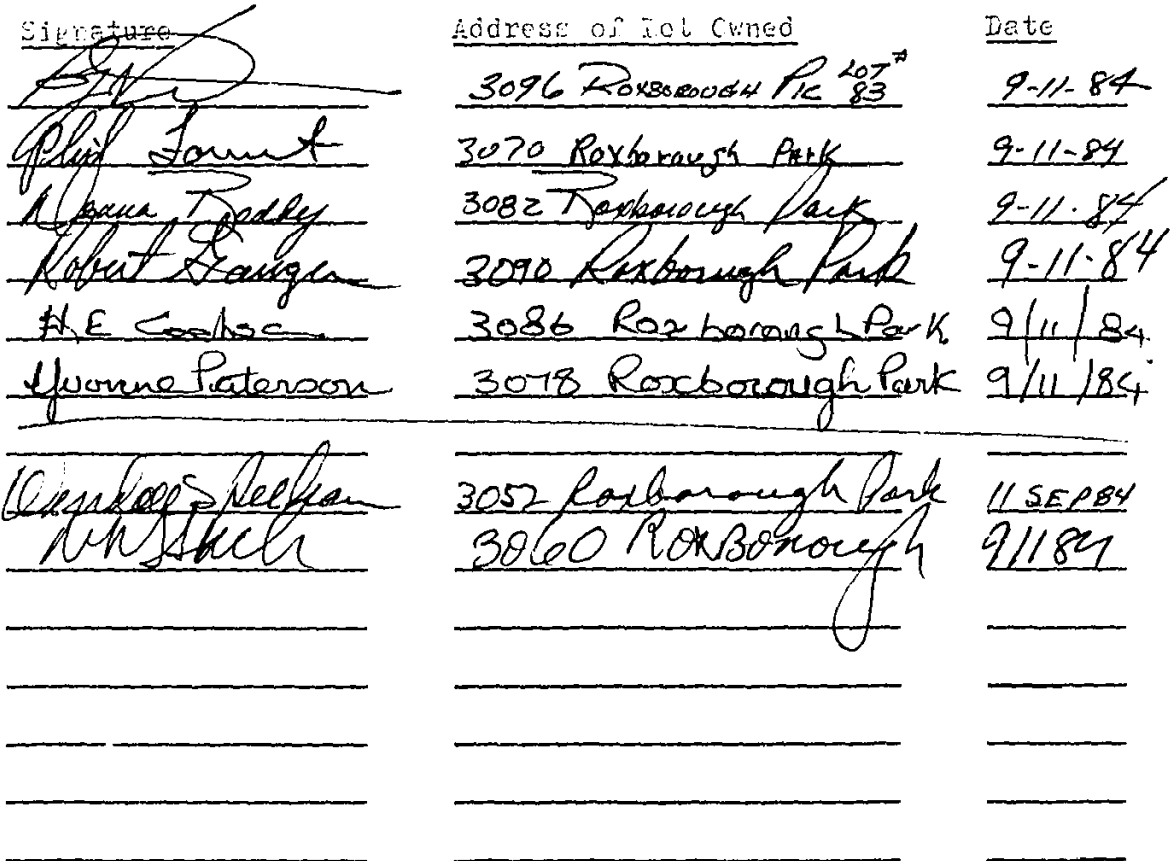 Signature Address of Lot Owned Date
3096 Roxborough Pk Lot # 83 9-11-84
Phil 3070 Roxborough Park 9-11-84
Donna Roddey 3082 Roxborough Park 9-11-84
Robert 3090 Roxborough Park 9-11-84
H E 3086 Roxborough Park 9/11/84
Yvonne Paterson 3078 Roxborough Park 9/11/84
3052 Roxborough Park 11 SEP 84
3060 Roxborough 91184